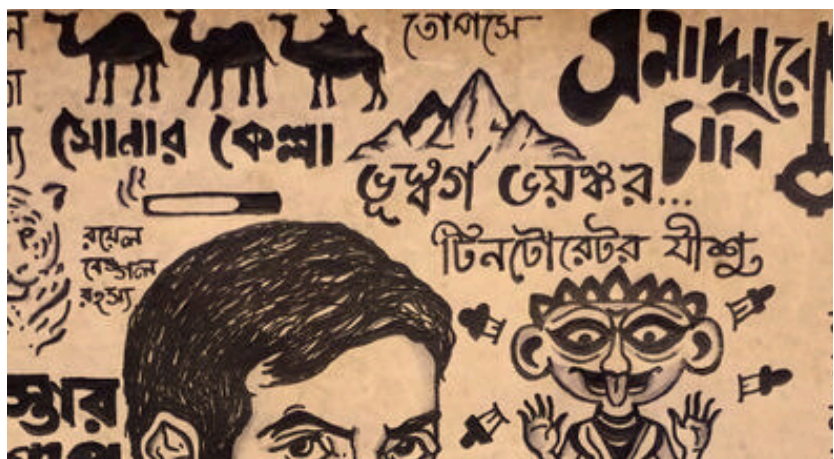 তোপসে
সমাদ্দারের
চাবি
সোনার কেল্লা
ভূস্বর্গ ভয়ঙ্কর...
টিনটোরেটর যীশু
রয়েল
বেঙ্গল
রহস্য